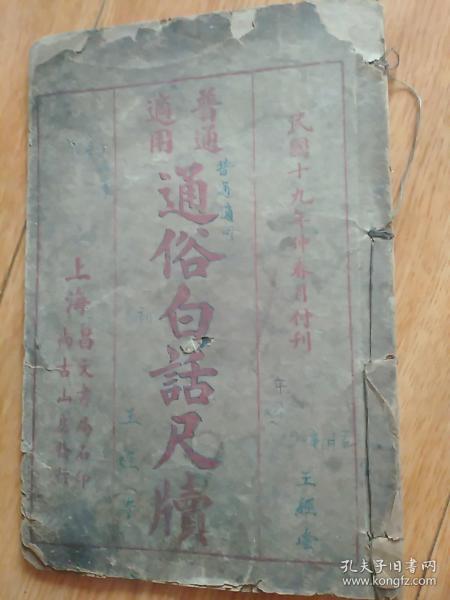 民國十九年仲春月付刊
普通
適用
通俗白話尺牘
上海昌文書局石印
尚古山房發行
普通適用
年
孔夫子旧书网
www.kongfz.com